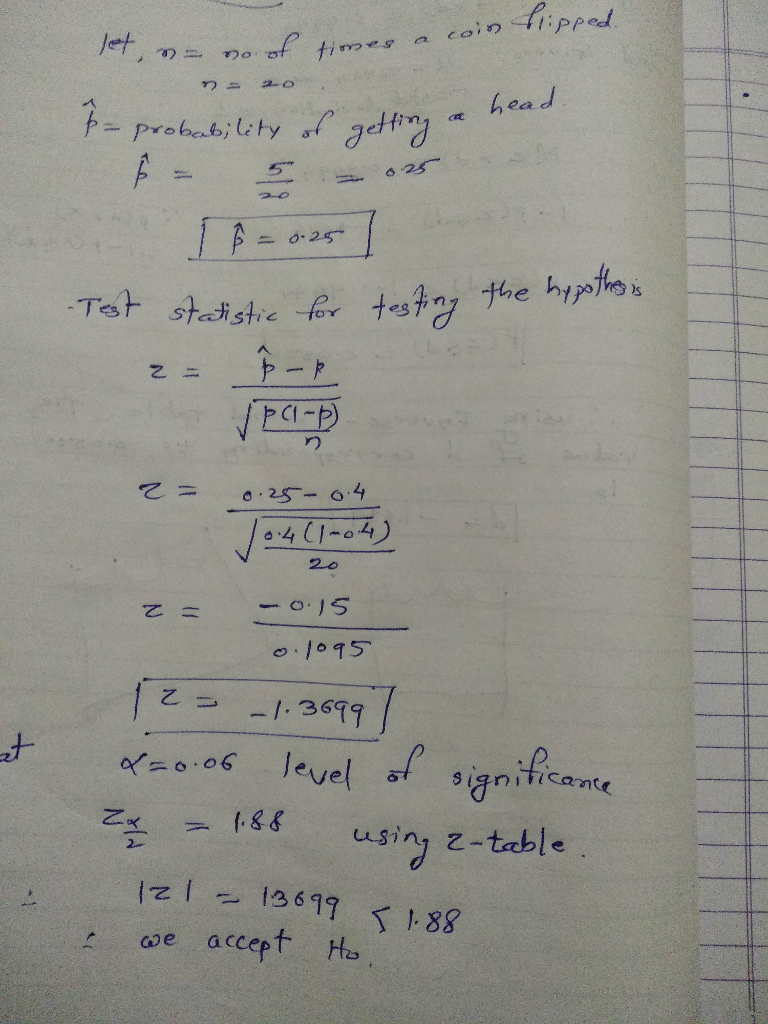 let, n = no. of times a coin flipped.
n = 20.
p̂ = probability of getting a head.
p̂ = 5/20 = 0.25
p̂ = 0.25
-Test statistic for testing the hypothesis
z = (p̂ - p) / √(p(1-p)/n)
z = (0.25 - 0.4) / √(0.4(1-0.4)/20)
z = -0.15 / 0.1095
z = -1.3699
at α=0.06 level of significance
z α/2 = 1.88 using z-table.
∴ |z| = 1.3699 < 1.88
∴ we accept H₀.